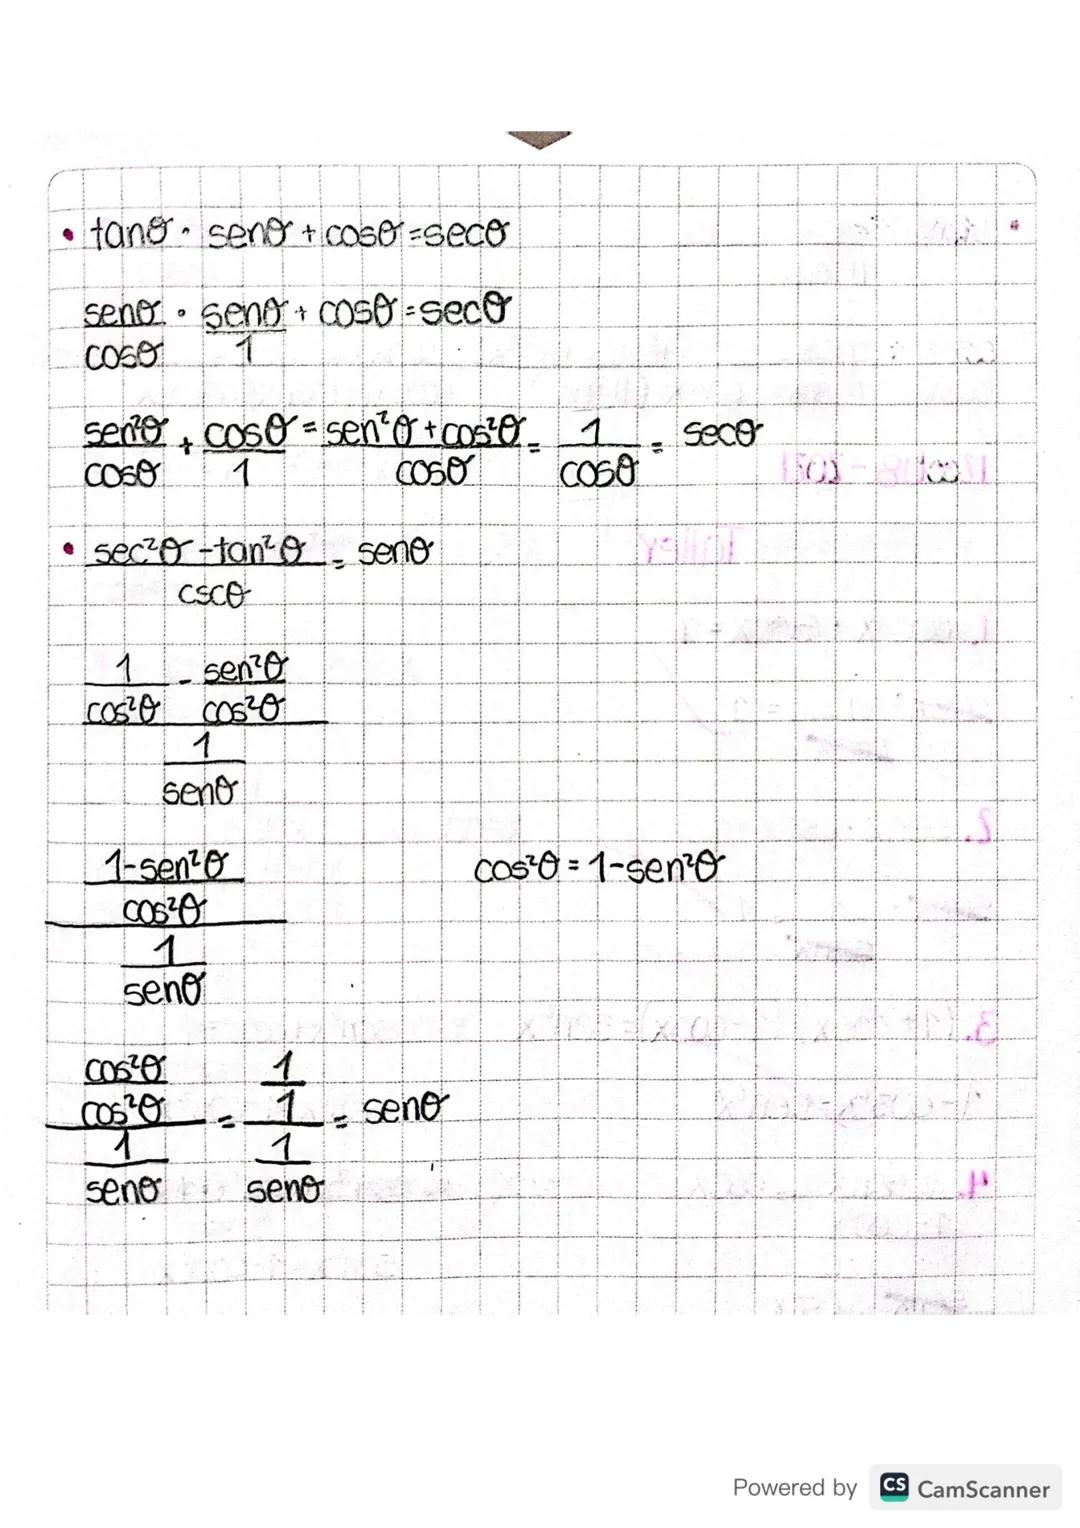 • tanθ · senθ + cosθ = secθ
senθ/cosθ · senθ/1 + cosθ = secθ
sen²θ/cosθ + cosθ/1 = sen²θ + cos²θ/cosθ = 1/cosθ = secθ
17 oct 18 - 2021
• sec²θ - tan²θ/cscθ = senθ
Taller
1.
1/cos²θ - sen²θ/cos²θ
1/senθ
2.
1-sen²θ/cos²θ cos²θ = 1-sen²θ
1/senθ
3.
cos²θ/cos²θ / 1/senθ = 1/1 / 1/senθ = senθ
4.
Powered by CS CamScanner